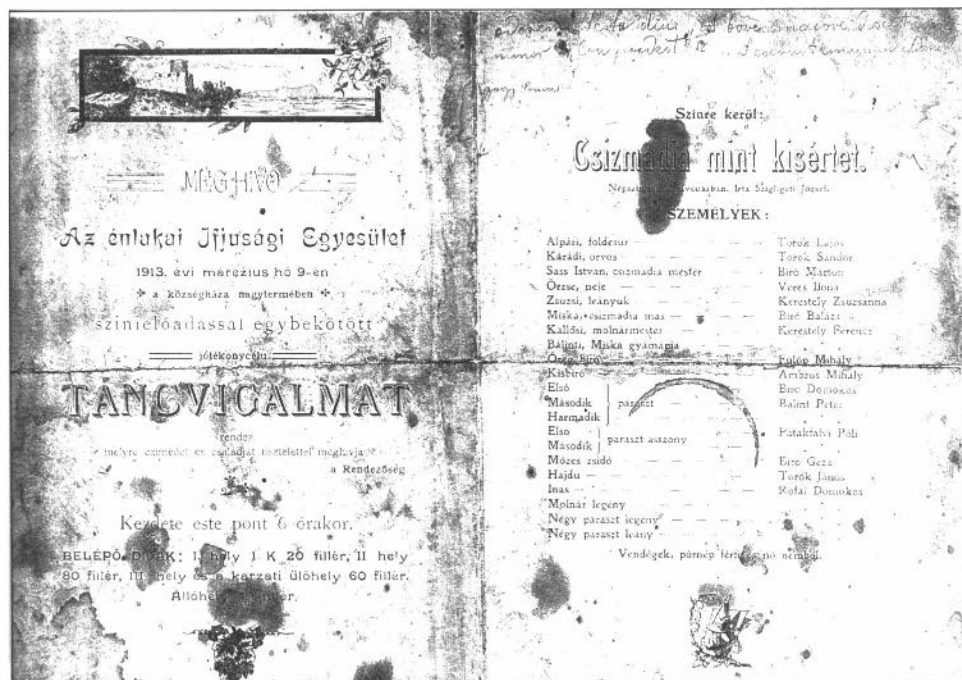 MEGHIVÓ
Az énlakai Ifjusági Egyesület
1913. évi marczius hó 9-én
a községháza nagytermében
szinielőadással egybekötött
jótékonycélu
TÁNCVIGALMAT
rendez
melyre czimedet és családját tisztelettel meghivja
a Rendezőség
Kezdete este pont 6 órakor.
BELÉPŐ DIJAK: I. hely 1 K 20 fillér, II hely
80 fillér, III. hely és a karzati ülőhely 60 fillér.
Állóhely fillér.
Szinre kerül:
Csizmadia mint kisértet.
Irta Szigligeti József.
SZEMÉLYEK:
Alpári, földesur — Török Lajos
Kárádi, orvos — Török Sándor
Sass István, csizmadia mester — Biró Márton
Örzse, neje — Veres Ilona
Zsuzsi, leányuk — Kerestely Zsuzsanna
Miska, csizmadia inas — Biró Balázs
Kallósi, molnármester — Kerestely Ferencz
Bálinti, Miska gyámapja
Öreg biró — Fülöp Mihály
Kisbiró — Ambrus Mihály
Első
Második } paraszt — Balint Péter
Harmadik
Első } paraszt asszony — Patakfalvi Póli
Második
Mózes zsidó — Géza
Hajdu — Török János
Inas — Rofai Domokos
Molnár legény
Négy paraszt legény
Négy paraszt leány
Vendégek, pórnép férfi s nő nemből.